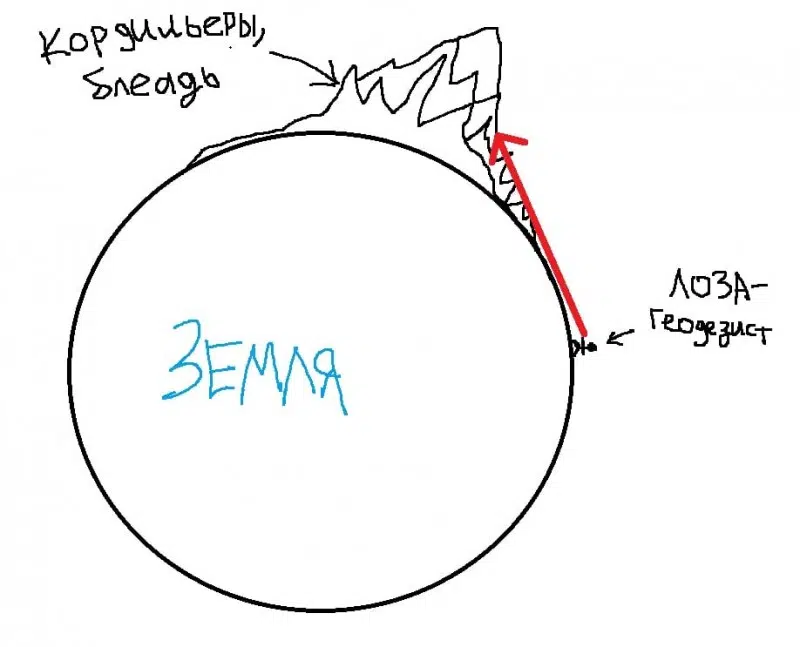 Кордильеры,
блеадь
ЛОЗА-
геодезист
ЗЕМЛЯ